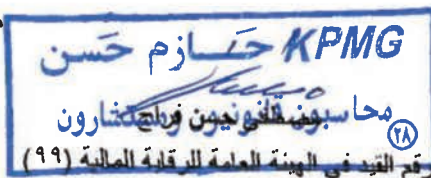 KPMG حازم حسن
محاسبون قانونيون ومستشارون
(٢٨)
رقم القيد في الهيئة العامة للرقابة المالية (٩٩)